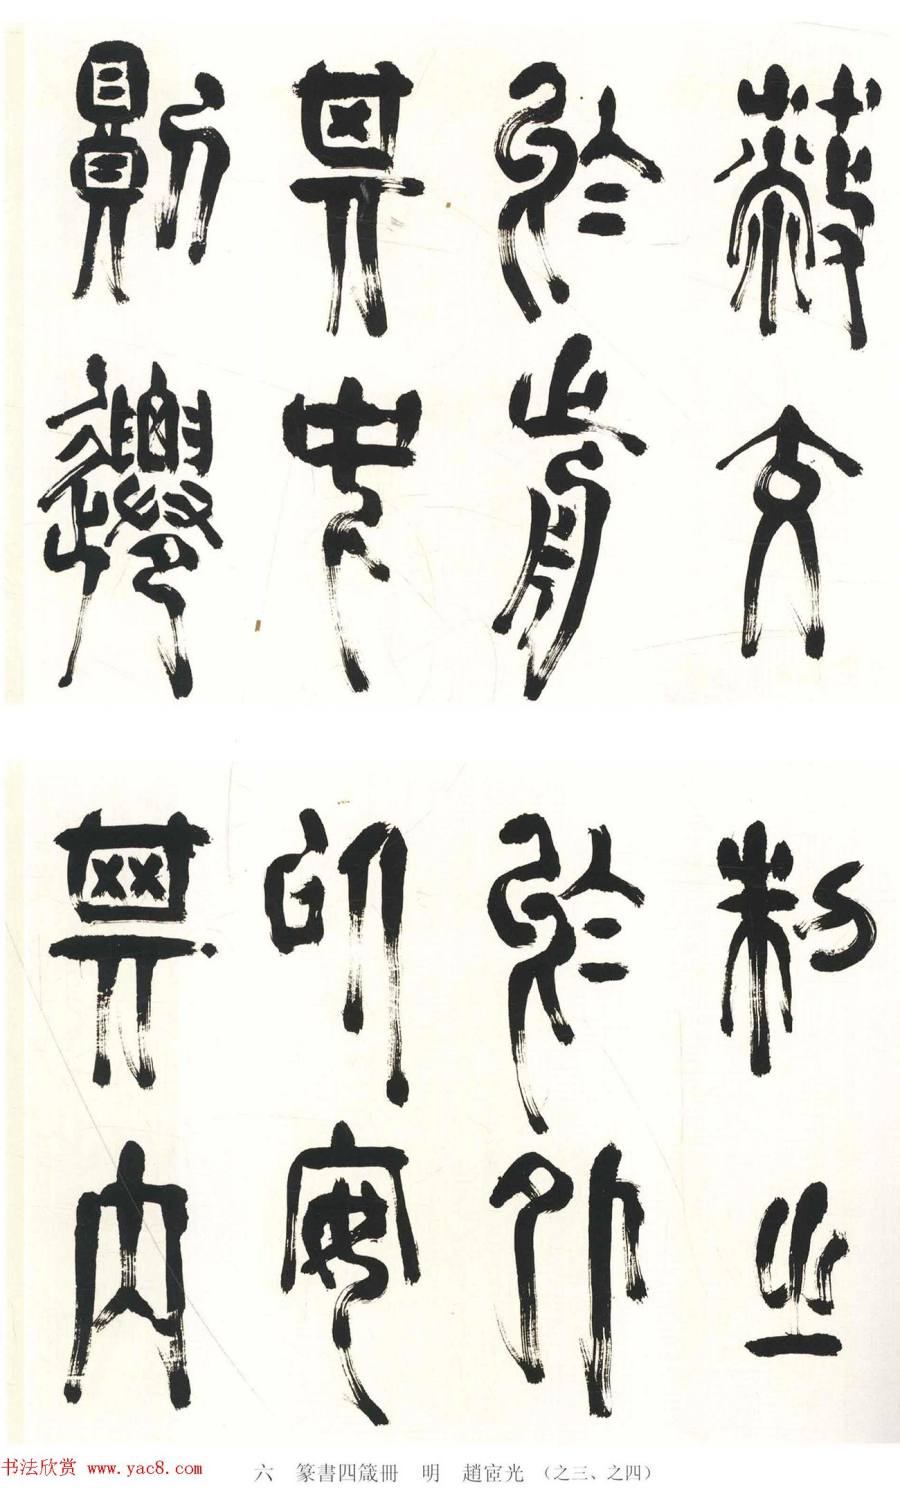 蔽交
於前
其中
則遷
制之
於外
以安
其內
书法欣赏 www.yac8.com
六 篆書四箴冊 明 趙宧光 (之三、之四)